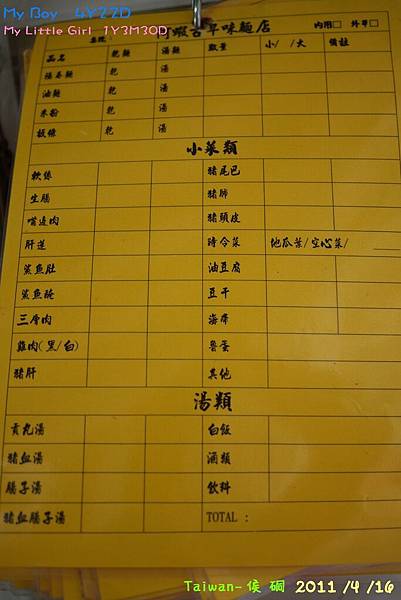 My Boy 4Y22D
My Little Girl 1Y3M30D
蝦古早味麵店 內用□ 外帶□
品名 乾麵 湯麵 數量 小/ /大 備註
福泰麵 乾 湯
油麵 乾 湯
米粉 乾 湯
板條 乾 湯
小菜類
軟係 豬尾巴
生腸 豬肺
嘴邊肉 豬頭皮
肝連 時令菜 地瓜葉/空心菜/
鯊魚肚 油豆腐
鯊魚醃 豆干
三層肉 海帶
雞肉(黑/白) 魯蛋
豬肝 其他
湯類
貢丸湯 白飯
豬血湯 酒類
腸子湯 飲料
豬血腸子湯 TOTAL :
Taiwan-侯硐 2011 /4 /16